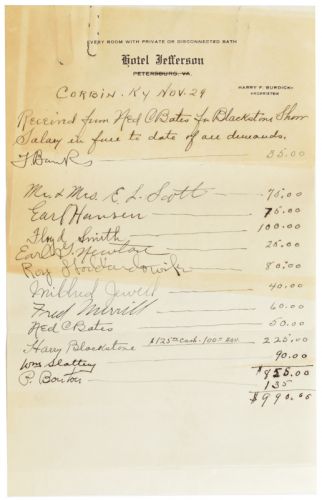 EVERY ROOM WITH PRIVATE OR DISCONNECTED BATH
Hotel Jefferson
PETERSBURG, VA.
HARRY F. BURDICK
PROPRIETOR
CORBIN. KY NOV. 29
Received from Ned C Bates for Blackstone Show
Salary in full to date of all demands.
T Banks 35.00
Mr. & Mrs. E. L. Scott 75.00
Earl Hansen 75.00
Floyd Smith 100.00
Earl Newton 25.00
Roy & wife 80.00
Mildred Jewell 40.00
Fred Merrill 60.00
Ned C Bates 50.00
Harry Blackstone $125.00 Cash - 100.00 225.00
Wm Slattery 90.00
P. Bouton $855.00
135
$990.00